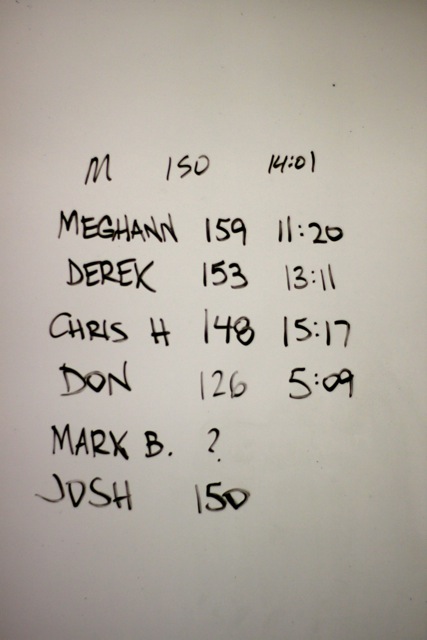 M 150 14:01
MEGHANN 159 11:20
DEREK 153 13:11
CHRIS H 148 15:17
DON 126 5:09
MARK B. ?
JOSH 150